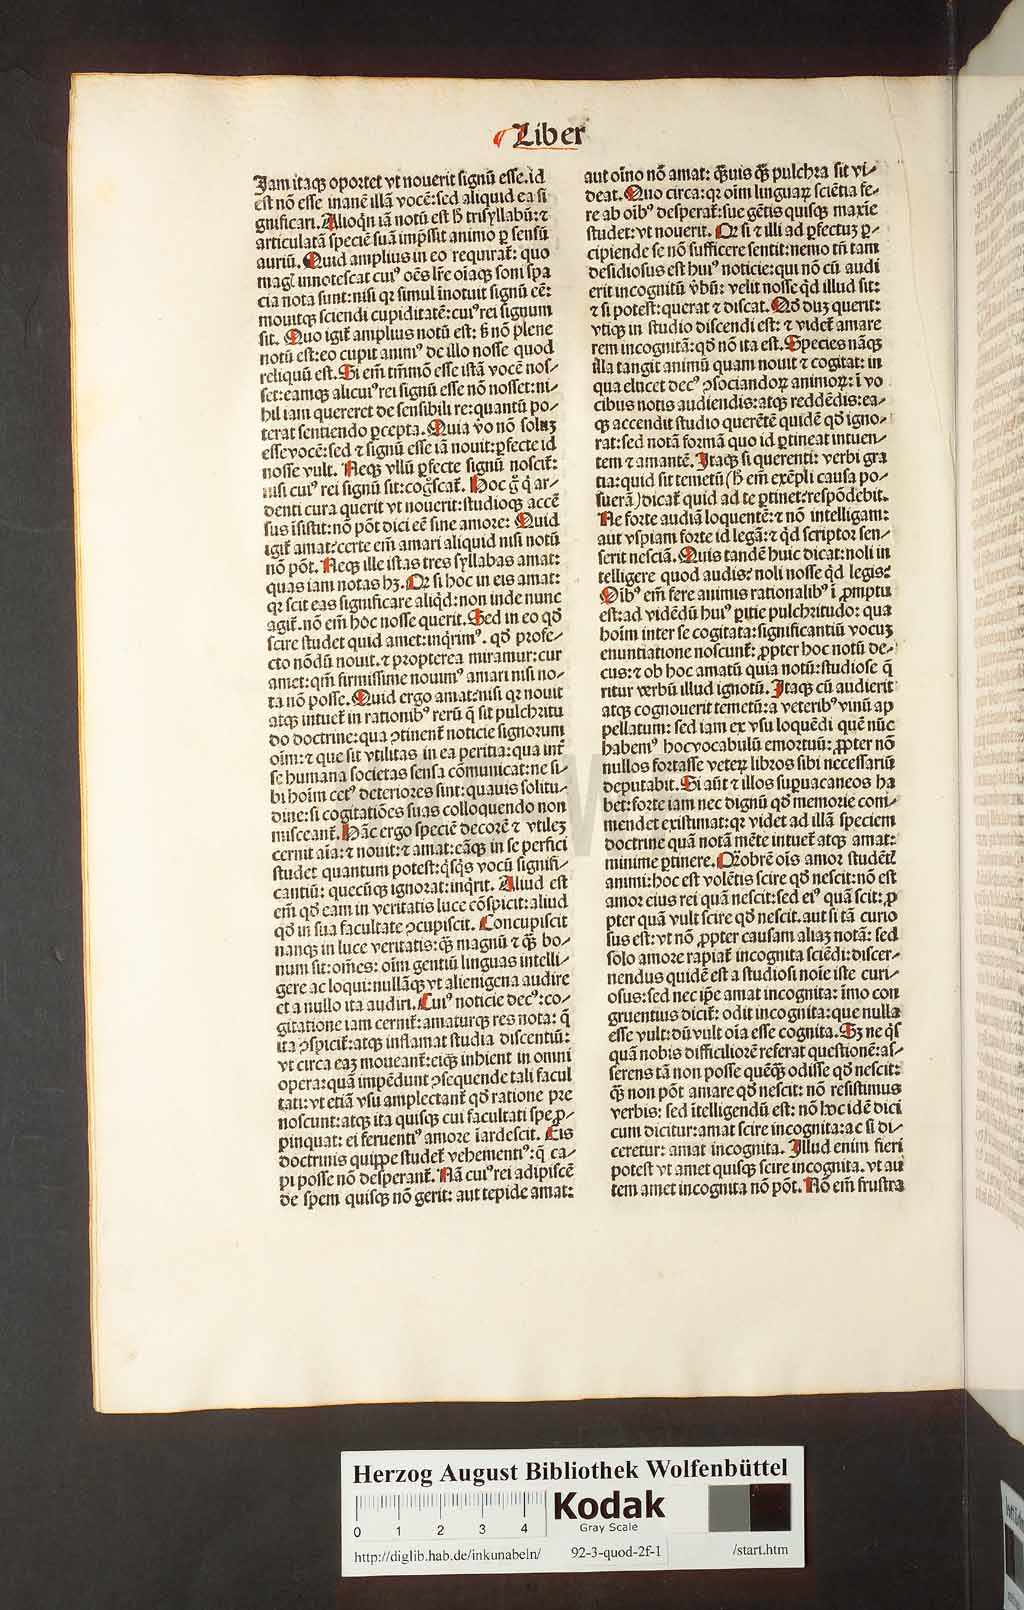 Liber
Jam itaqꝫ oportet vt nouerit signū esse. id
est nō esse inanē illā vocē: sed aliquid ea si
gnificari. Alioqͥn iā notū est hͦ trisyllabū: ⁊
articulatā speciē suā imp̄ssit animo ꝑ sensū
auriū. Quid amplius in eo requirat᷑: quo
magͥ innotescat cuiꝰ oēs lr̄e oīaqꝫ soni spa
cia nota sunt: nisi qꝛ simul īnotuit signū eē:
mouitqꝫ sciendi cupiditatē: cuiꝰ rei signum
sit. Quo igit᷑ amplius notū est: sꝫ nō plene
notū est: eo cupit animꝰ de illo nosse quod
reliquū est. Si em̄ tm̄mō esse istā vocē nos⸗
set: eamqꝫ alicuiꝰ rei signū esse nō nosset: ni⸗
hil iam quereret de sensibili re: quantū po⸗
terat sentiendo ꝑcepta. Quia v̄o nō soluꝫ
esse vocē: sed ⁊ signū esse iā nouit: ꝑfecte id
nosse vult. Neqꝫ vllū ꝑfecte signū noscit᷑:
nisi cuiꝰ rei signū sit: cog̊scat᷑. Hoc gͦ qͥ ar⸗
denti cura querit vt nouerit: studioqꝫ accē
sus īsistit: nō pōt dici eē sine amore: Quid
igit᷑ amat: certe em̄ amari aliquid nisi notū
nō pōt. Neqꝫ ille istas tres syllabas amat:
quas iam notas hꝫ. Qꝛ si hoc in eis amat:
qꝛ scit eas significare aliqͥd: non inde nunc
agit᷑. nō em̄ hoc nosse querit. Sed in eo qd̓
scire studet quid amet: inqͥrimꝰ. qd̓ profe⸗
cto nōdū nouit. ⁊ propterea miramur: cur
amet: qm̄ firmissime nouimꝰ amari nisi no⸗
ta nō posse. Quid ergo amat: nisi qꝛ nouit
atqꝫ intuet᷑ in rationibꝰ rerū q̄ sit pulchritu
do doctrine: qua ꝯtinent᷑ noticie signorum
oīm: ⁊ que sit vtilitas in ea peritia: qua int̓
se humana societas sensa cōmunicat: ne si⸗
bi hoīm cetꝰ deteriores sint: quauis solitu⸗
dine: si cogitatiōes suas colloquendo non
misceant᷑. Hāc ergo speciē decorē ⁊ vtileꝫ
cernit aīa: ⁊ nouit: ⁊ amat: eāqꝫ in se perfici
studet quantum potest: qͥsqͥs vocū signifi⸗
cantiū: quecūqꝫ ignorat: inqͥrit. Aliud est
em̄ qd̓ eam in veritatis luce cōspicit: aliud
qd̓ in sua facultate ꝯcupiscit. Concupiscit
nanqꝫ in luce veritatis: qꝫ magnū ⁊ qꝫ bo⸗
num sit: om̄es: oīm gentiū linguas intelli⸗
gere ac loqui: nullāqꝫ vt alienigena audire
et a nullo ita audiri. Cuiꝰ noticie decꝰ: co⸗
gitatione iam cernit᷑: amaturqꝫ res nota: q̄
ita ꝯspicit᷑: atqꝫ inflamat studia discentiū:
vt circa eaꝫ moueant᷑: eiqꝫ inhient in omni
opera: quā impēdunt ꝯsequende tali facul
tati: vt etiā vsu amplectant᷑ qd̓ ratione pre
noscunt: atqꝫ ita quisqꝫ cui facultati spe ꝓ⸗
pinquat: ei feruentiꝰ amore īardescit. Eis
doctrinis quippe studet᷑ vehementiꝰ: q̄ ca⸗
pi posse nō desperant᷑. Nā cuiꝰ rei adipiscē
de spem quisqꝫ nō gerit: aut tepide amat:
aut oīno nō amat: qꝫuis qꝫ pulchra sit vi⸗
deat. Quo circa: qꝛ oīm linguaꝝ sciētia fe⸗
re ab oībꝰ desperat᷑: sue gētis quisqꝫ maxie
studet: vt nouerit. Qꝛ si ⁊ illi ad ꝑfectuꝫ ꝑ⸗
cipiende se nō sufficere sentit: nemo tn̄ tam
desidiosus est huiꝰ noticie: qui nō cū audi
erit incognitū v̓bū: velit nosse qͥd illud sit:
⁊ si potest: querat ⁊ discat. Qd̓ duꝫ querit:
vtiqꝫ in studio discendi est: ⁊ videt᷑ amare
rem incognitā: qd̓ nō ita est. Species nāqꝫ
illa tangit animū quam nouit ⁊ cogitat: in
qua elucet decꝰ ꝯsociandoꝝ animoꝝ: ī vo
cibus notis audiendis: atqꝫ reddēdis: ea⸗
qꝫ accendit studio querētē quidē qd̓ igno⸗
rat: sed notā formā quo id ꝑtineat intuen⸗
tem ⁊ amantē. Itaqꝫ si querenti: verbi gra
tia: quid sit temetū (hͦ em̄ exēpli causa po⸗
suerā) dicat᷑ quid ad te ꝑtinet: respōdebit.
Ne forte audiā loquentē: ⁊ nō intelligam:
aut vspiam forte id legā: ⁊ qͥd scriptor sen⸗
serit nesciā. Quis tandē huic dicat: noli in
telligere quod audis: noli nosse qͥd legis:
Oībꝰ em̄ fere animis rationalibꝰ ī ꝓmptu
est: ad vidēdū huiꝰ ꝑitie pulchritudo: qua
hoīm inter se cogitata: significantiū vocuꝫ
enuntiatione noscunt᷑: ꝓpter hoc notū de⸗
cus: ⁊ ob hoc amatū quia notū: studiose q̄
ritur verbū illud ignotū. Itaqꝫ cū audierit
atqꝫ cognouerit temetū: a veteribꝰ vinū ap
pellatum: sed iam ex vsu loquēdi quē nūc
habemꝰ hocvocabulū emortuū: ꝓpter nō
nullos fortasse veteꝝ libros sibi necessariū
deputabit. Si aūt ⁊ illos supuacaneos ha
bet: forte iam nec dignū qd̓ memorie com⸗
mendet existimat: qꝛ videt ad illā speciem
doctrine quā notā mēte intuet᷑ atqꝫ amat:
minime ꝑtinere. Qꝛobrē oīs amor studētꝭ
animi: hoc est volētis scire qd̓ nescit: nō est
amor eius rei quā nescit: sed eiꝰ quā scit: ꝓ
pter quā vult scire qd̓ nescit. aut si tā curio
sus est: vt nō ꝓpter causam aliaꝫ notā: sed
solo amore rapiat᷑ incognita sciēdi: discer⸗
nendus quidē est a studiosi noīe iste curi⸗
osus: sed nec ip̄e amat incognita: īmo con
gruentius dicit᷑: odit incognita: que nulla
esse vult: dū vult oīa esse cognita. Sꝫ ne qͥs
quā nobis difficiliorē referat questionē: as⸗
serens tā non posse quēqꝫ odisse qd̓ nescit:
qꝫ non pōt amare qd̓ nescit: nō resistimus
verbis: sed ītelligendū est: nō hoc idē dici
cum dicitur: amat scire incognita: ac si di⸗
ceretur: amat incognita. Illud enim fieri
potest vt amet quisqꝫ scire incognita. vt au
tem amet incognita nō pōt. Nō em̄ frustra
Herzog August Bibliothek Wolfenbüttel
Kodak
Gray Scale
0 1 2 3 4
http://diglib.hab.de/inkunabeln/ 92-3-quod-2f-1 /start.htm